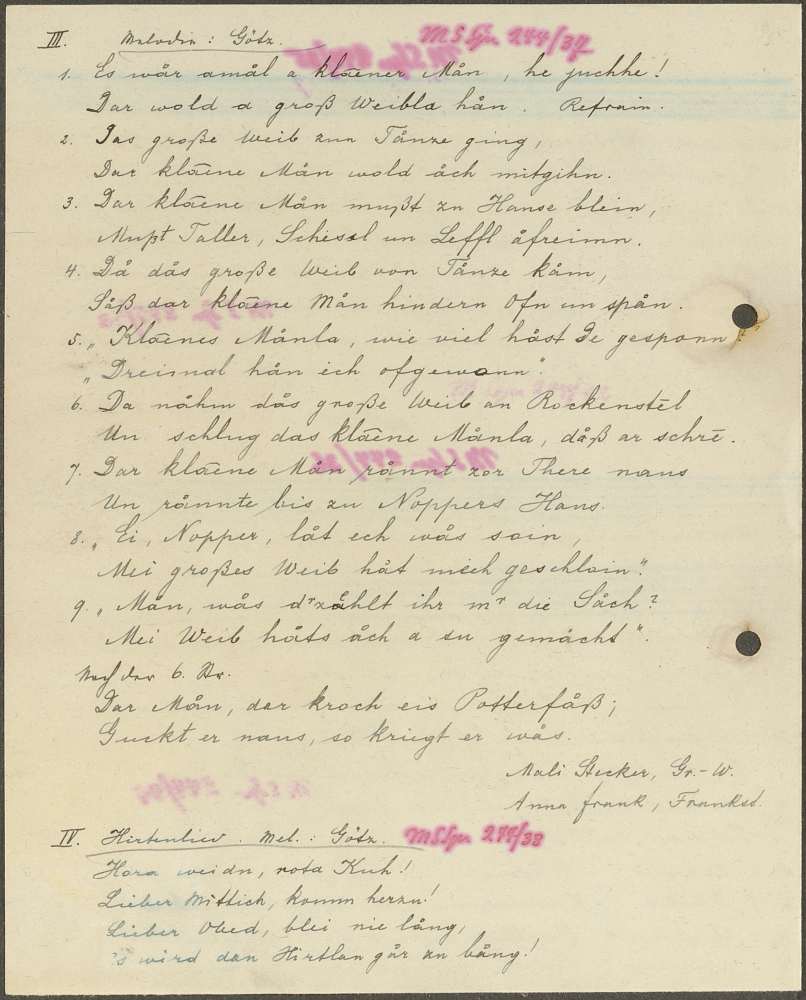 III. Melodie: Götz. MS Spr. 274/37
1. Es wår amål a klāener Mån, he juchhe!
Dar wold a groß Weibla hån. Refrain.
2. Das große Weib zun Tånze ging,
Dar klāene Mån wold åch mitgihn.
3. Dar klāene Mån mußt zu Hause blein,
Mußt Taller, Schissl un Leffl åfreimn.
4. Då dås große Weib von Tånze kåm,
Såß dar klāene Mån hindern Ofn un spån.
5. „Klāenes Månla, wie viel håst De gesponn?"
„Dreimal hån ich ofgewonn".
6. Da nåhm dås große Weib an Rockenstēl
Un schlug das klāene Månla, dåß ar schrē.
7. Dar klāene Mån rånnt zor There naus
Un rånnte bis zu Noppers Haus.
8. „Ei, Nopper, låt ech wås sain,
Mei großes Weib håt mich geschlain".
9. „Mån, wås drzåhlt ihr mr die Såch?
Mei Weib håts åch a su gemåcht".
Nach der 6. Str.
Dar Mån, dar kroch eis Potterfåß;
Guckt er naus, so kriegt er wås.
Mali Stecker, Gr.-W.
Anna Frank, Frankst.
IV. Hirtenlied. Mel.: Götz. MS Spr 274/38
Hora weidn, rota Kuh!
Lieber Mittich, komm herzu!
Lieber Obed, blei nie lång,
's wird dan Hirtlan går zu bång!